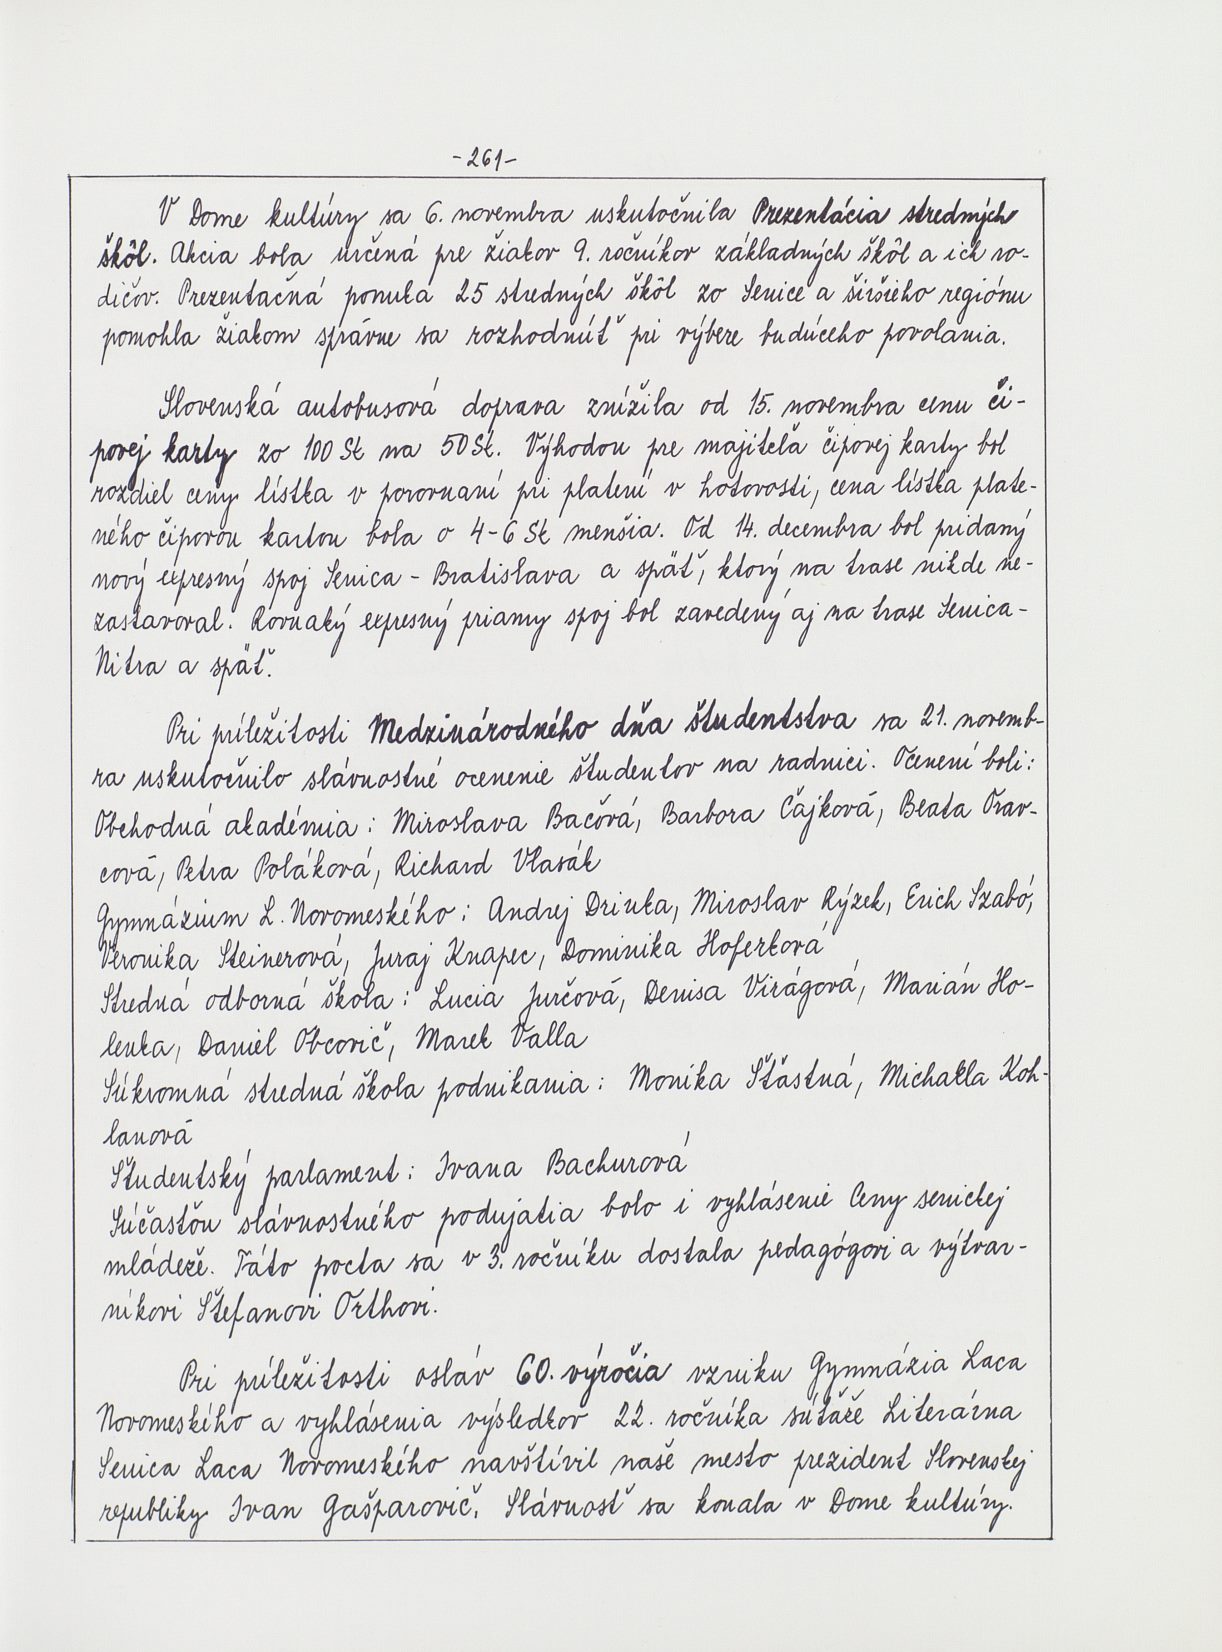 -261-
V Dome kultúry sa 6. novembra uskutočnila Prezentácia stredných
škôl. Akcia bola určená pre žiakov 9. ročníkov základných škôl a ich ro-
dičov. Prezentačná ponuka 25 stredných škôl zo Senice a širšieho regiónu
pomohla žiakom správne sa rozhodnúť pri výbere budúceho povolania.
Slovenská autobusová doprava znížila od 15. novembra cenu či-
povej karty zo 100 Sk na 50 Sk. Výhodou pre majiteľa čipovej karty bol
rozdiel ceny lístka v porovnaní pri platení v hotovosti, cena lístka plate-
ného čipovou kartou bola o 4-6 Sk menšia. Od 14. decembra bol pridaný
nový expresný spoj Senica - Bratislava a späť, ktorý na trase nikde ne-
zastavoval. Rovnaký expresný priamy spoj bol zavedený aj na trase Senica-
Nitra a späť.
Pri príležitosti Medzinárodného dňa študentstva sa 21. novemb-
ra uskutočnilo slávnostné ocenenie študentov na radnici. Ocenení boli:
Obchodná akadémia: Miroslava Bačová, Barbora Čajková, Beata Orav-
cová, Petra Poláková, Richard Vlasák
Gymnázium L. Novomeského: Andrej Drinka, Miroslav Rýzek, Erich Szabó,
Veronika Steinerová, Juraj Knapec, Dominika Hoferková
Stredná odborná škola: Lucia Jurčová, Denisa Virágová, Marián Ho-
lenka, Daniel Obcovič, Marek Valla
Súkromná stredná škola podnikania: Monika Šťastná, Michaela Koh-
lanová
Študentský parlament: Ivana Bachurová
Súčasťou slávnostného podujatia bolo i vyhlásenie Ceny senickej
mládeže. Táto pocta sa v 3. ročníku dostala pedagógovi a výtvar-
níkovi Štefanovi Orthovi.
Pri príležitosti osláv 60. výročia vzniku Gymnázia Laca
Novomeského a vyhlásenia výsledkov 22. ročníka súťaže Literárna
Senica Laca Novomeského navštívil naše mesto prezident Slovenskej
republiky Ivan Gašparovič. Slávnosť sa konala v Dome kultúry.